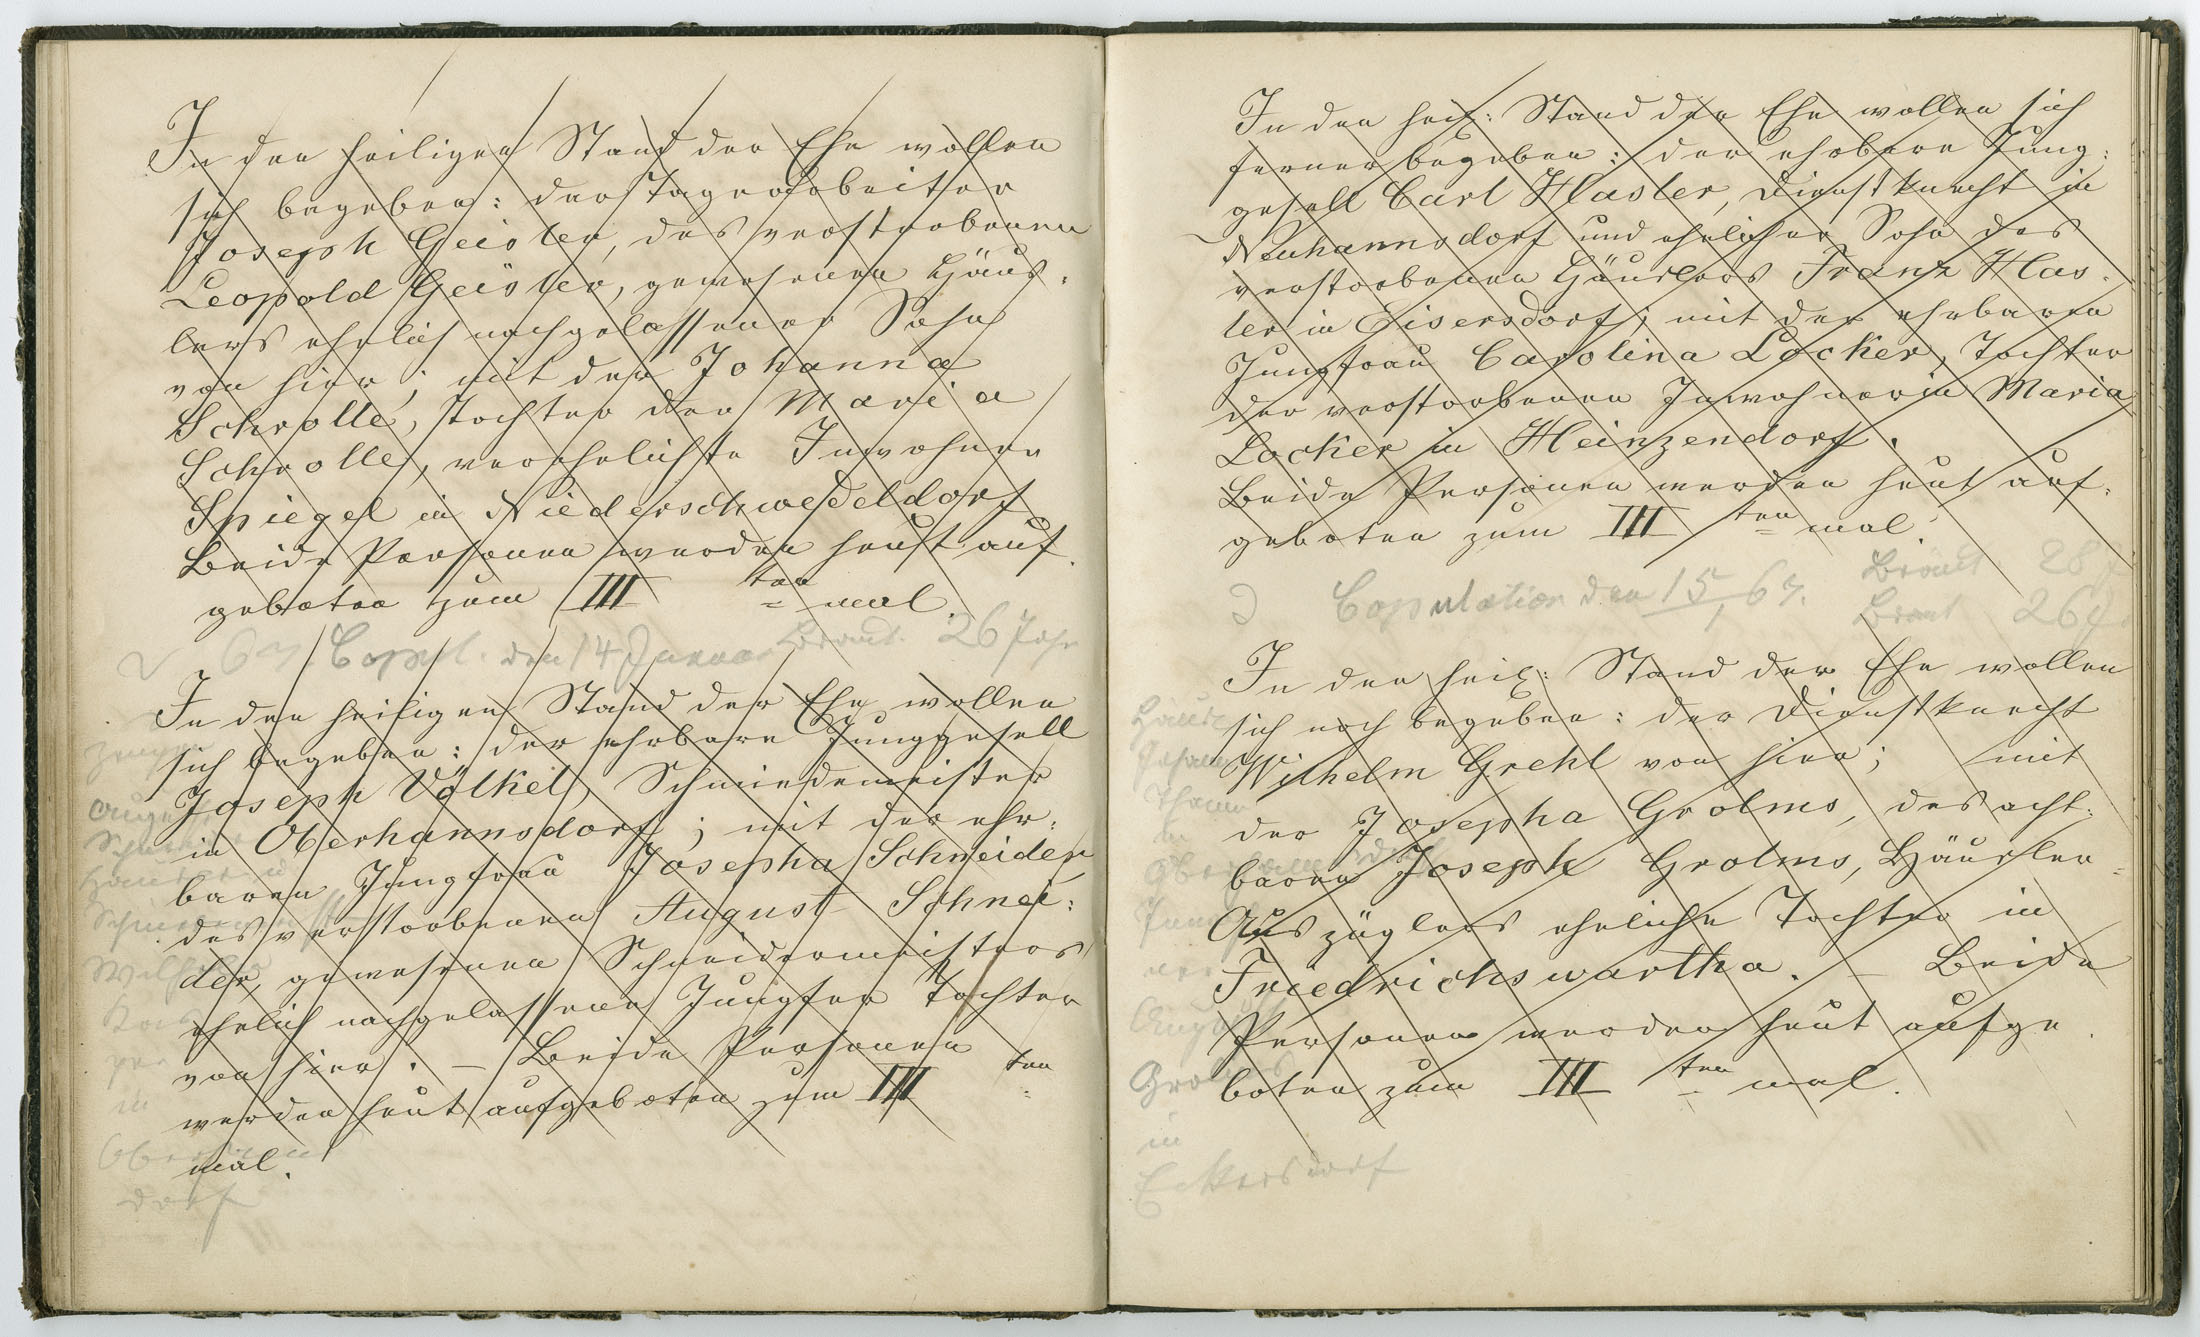 In den heiligen Stand der Ehe wollen
sich begeben: der Tagearbeiter
Joseph Geisler, des verstorbenen
Leopold Geisler, gewesenen Häus-
lers ehelich nachgelassener Sohn
von hier; mit der Johanna
Schrolle, Tochter der Maria
Schrolle, verehelichte Inwohner
Spiegel in Niederschwedeldorf
Beide Personen werden heut auf-
geboten zum III ten mal.
67. Copul. den 14 Januar Braut. 26 Jahr
In den heiligen Stand der Ehe wollen
sich begeben: der ehrbare Junggesell
Joseph Völkel, Schmiedemeister
in Oberhannsdorf; mit der ehr:
baren Jungfrau Josepha Schneider,
des verstorbenen August Schnei:
der, gewesenen Schneidermeisters
ehelich nachgelassene Jungfer Tochter
von hier. — Beide Personen
werden heut aufgeboten zum III ten
mal.
August
Wilhelm
in
dorf
In den heil: Stand der Ehe wollen sich
ferner begeben: der ehrbare Jung:
gesell Carl Hasler, Dienstknecht in
Neuhannsdorf und ehelicher Sohn des
verstorbenen Häuslers Franz Has-
ler in Eisersdorf; mit der ehrbaren
Jungfrau Carolina Locker, Tochter
der verstorbenen Inwohnerin Maria
Locker in Heinzendorf.
Beide Personen werden heut auf-
geboten zum III ten mal.
Copulation den 15/1 67. Bräut 28 J
Braut 26 J.
In den heil: Stand der Ehe wollen
sich noch begeben: der Dienstknecht
Wilhelm Grehl von hier; mit
der Josepha Grolms, des acht:
baren Joseph Grolms, Häusler-
Auszüglers eheliche Tochter in
Friedrichswartha. — Beide
Personen werden heut aufge-
boten zum III ten mal.
August
Grolms
in
Eckersdorf